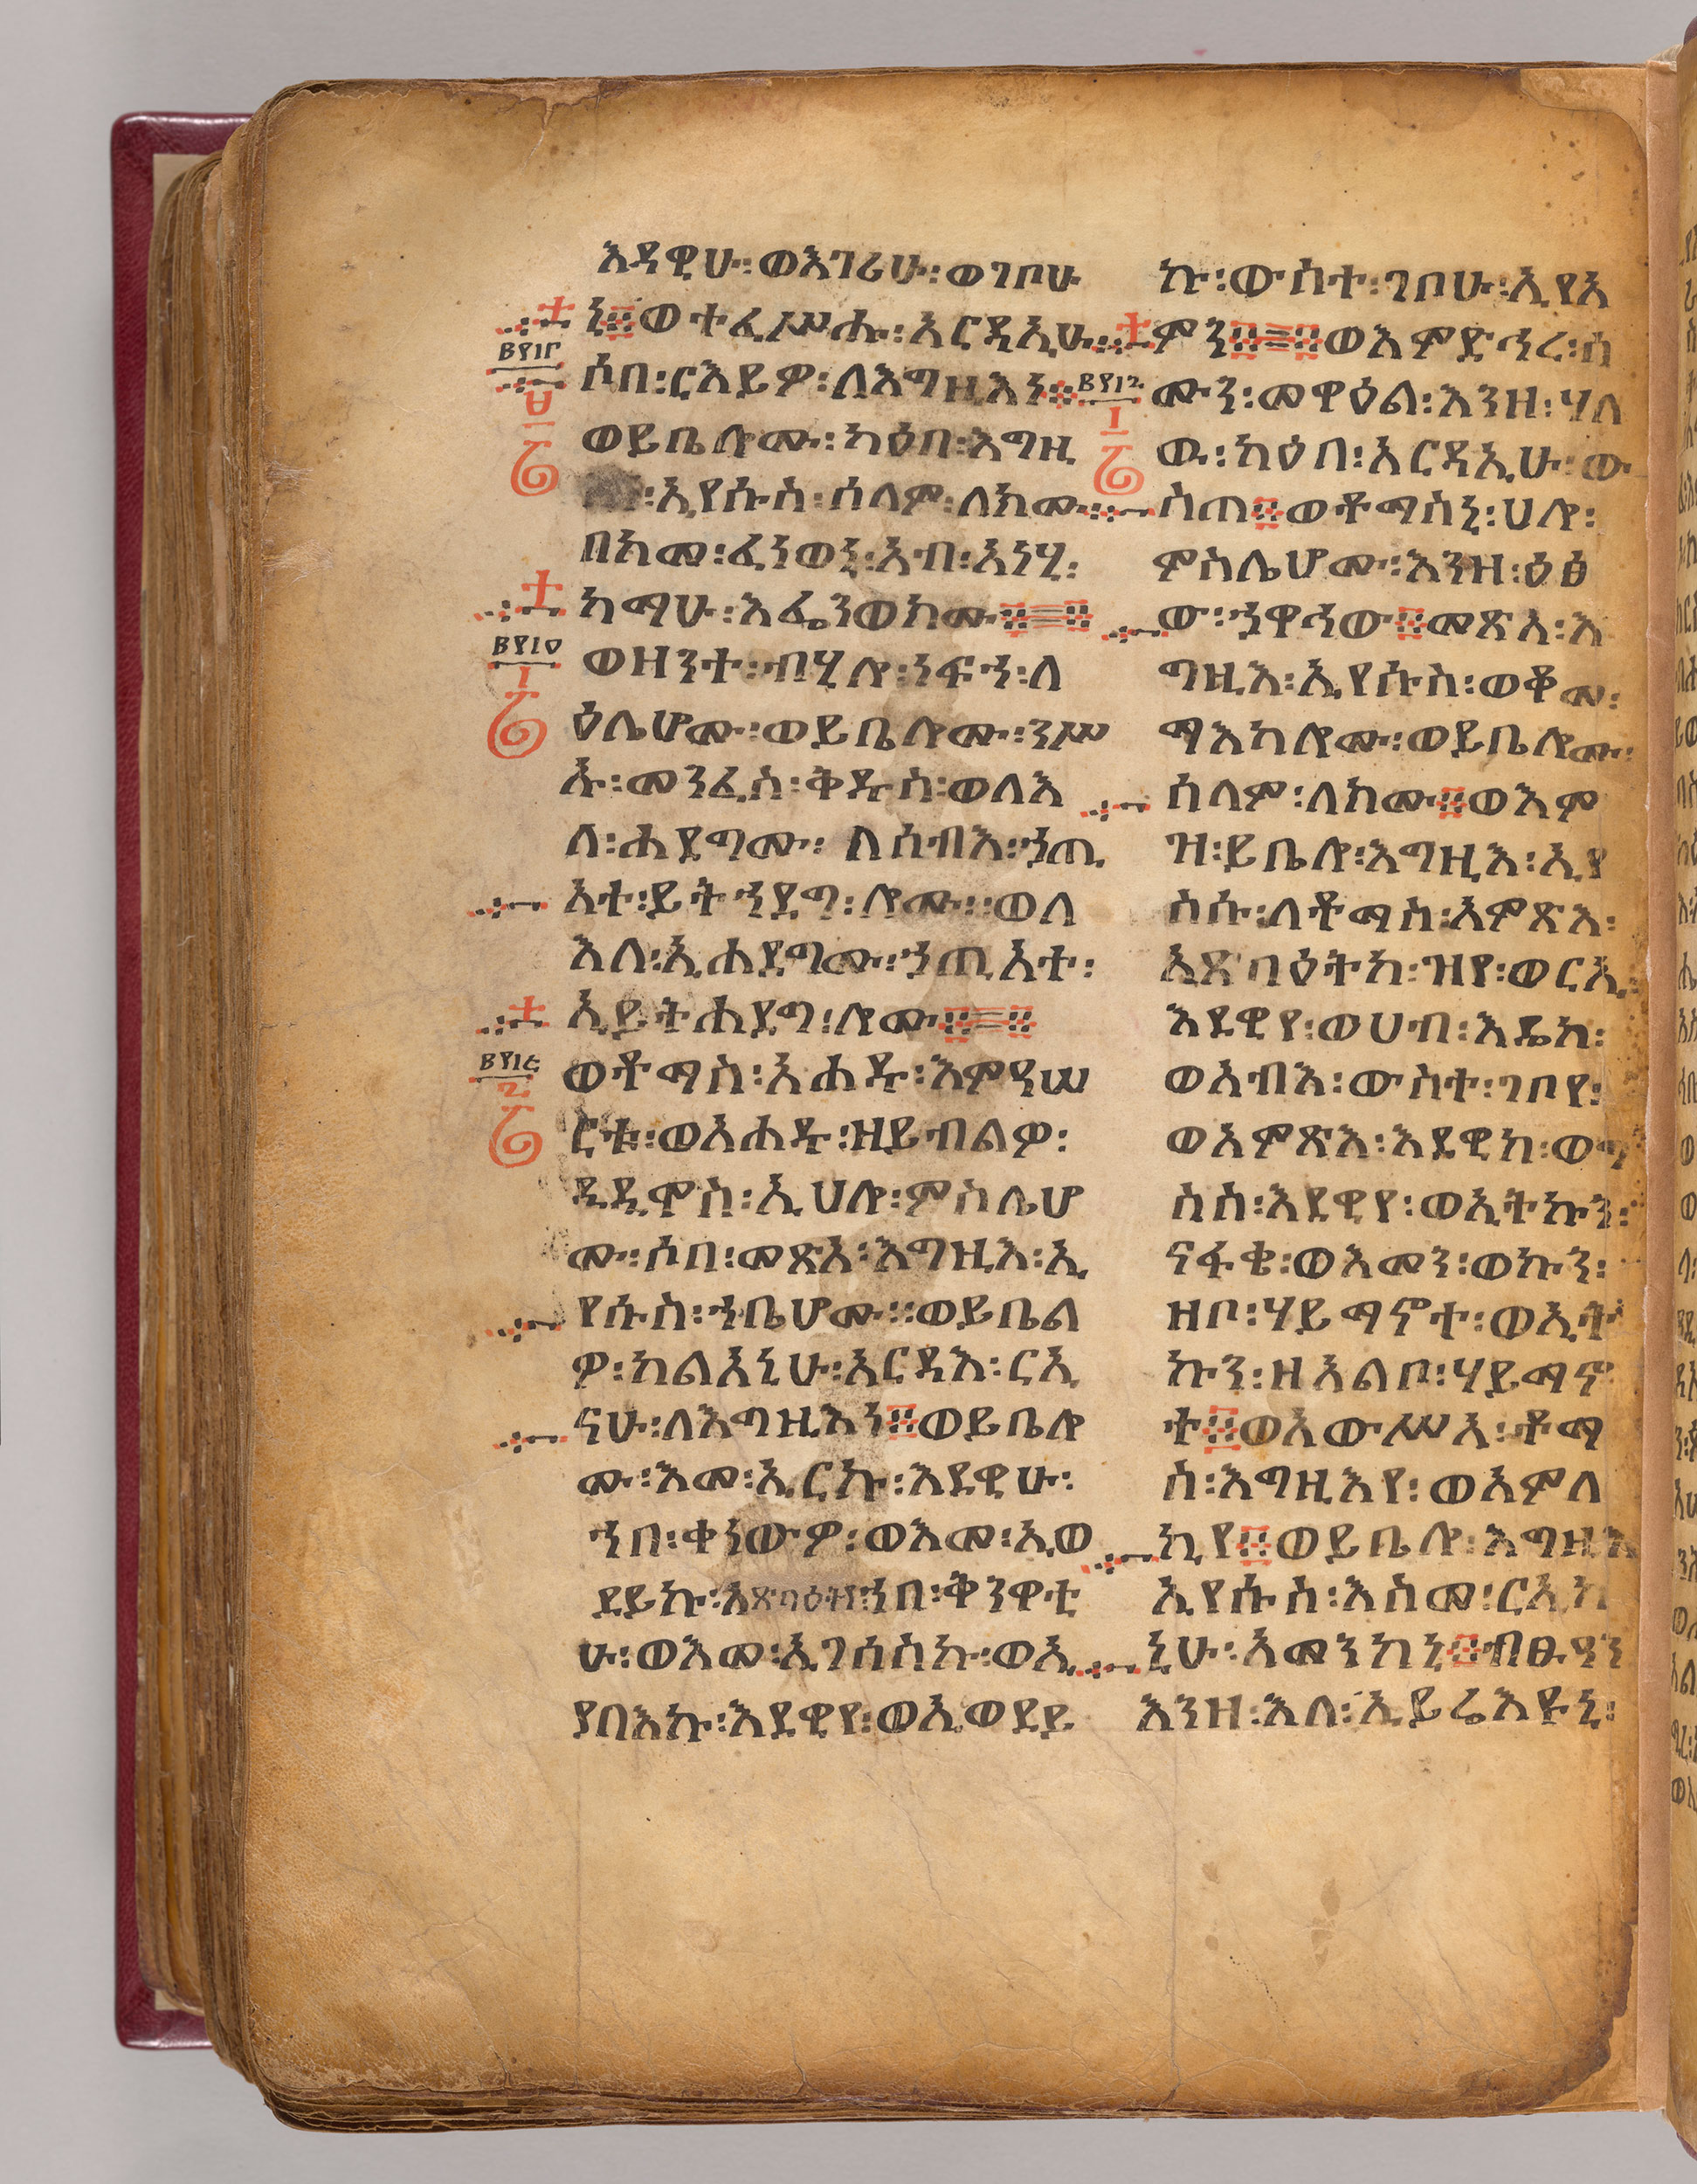 እዳዊሁ፡ወእገሪሁ፡ወገቦሁ
ኒ፨ወተፈሥሑ፡አርዲኢሁ፡
ሶበ፡ርእይዎ፡ለእግዚእነ፨
ወይቤሎሙ፡ካዕበ፡እግዚ
፡ኢየሱስ፡ሰላም፡ለክሙ፡
በከመ፡ፈነወኒ፡አብ፡አነሂ፡
ካማሁ፡እፌንወክሙ፨፨
ወዘንተ፡ብሂሎ፡ነፍኀ፡ለ
ዕሌሆሙ፡ወይቤሎሙ፡ንሥ
ኡ፡መንፈስ፡ቅዱስ፡ወለእ
ለ፡ሐደግሙ፡ለሰብእ፡ኃጢ
አተ፡ይትኀደግ፡ሎሙ፡፡ወለ
እለ፡ኢሐደግሙ፡ኃጢአተ፡
ኢይትሐደግ፡ሎሙ፨፨
ወቶማስ፡አሐዱ፡እምዓሠ
ርቱ፡ወአሐዱ፡ዘይብልዎ፡
ዲዲሞስ፡ኢሀሎ፡ምስሌሆ
ሙ፡ሶበ፡መጽአ፡እግዚእ፡ኢ
የሱስ፡ኀቤሆሙ፡፡ወይቤል
ዎ፡ካልአኒሁ፡አርዳእ፡ርኢ
ናሁ፡ለእግዚእነ፨ወይቤሎ
ሙ፡እመ፡ኢርኩ፡እደዊሁ፡
ኀበ፡ቀነውዎ፡ወእመ፡ኢወ
ደይኩ፡አጽባዕትየ፡ኀበ፡ቅንዋቲ
ሁ፡ወእመ፡ኢገሰስኩ፡ወኢ
ያበእኩ፡እደዊየ፡ወኢወደይ
ኩ፡ውስተ፡ገቦሁ፡ኢየአ
ምን፨፨ወእምድኅረ፡ሰ
ሙን፡መዋዕል፡እንዘ፡ሃለ
ዉ፡ካዕበ፡አርዳኢሁ፡ው
ስጠ፨ወቶማስኒ፡ሀሎ፡
ምስሌሆሙ፡እንዘ፡ዕፅ
ው፡ኃዋኅው፨መጽአ፡እ
ግዚእ፡ኢየሱስ፡ወቆመ፡
ማእከሎሙ፡ወይቤሎሙ፡
ሰላም፡ለክሙ፨ወእም
ዝ፡ይቤሎ፡እግዚእ፡ኢየ
ስሱ፡ለቶማስ፡አምጽእ፡
አጽባዕትከ፡ዝየ፡ወርኢ፡
እደዊየ፡ወሀብ፡እዴከ፡
ወአብእ፡ውስተ፡ገቦየ፡
ወአምጽእ፡እደዊከ፡ወግ
ስስ፡እደዊየ፡ወኢትኩን፡
ናፋቄ፡ወእመን፡ወኩን፡
ዘቦ፡ሃይማኖተ፡ወኢት
ኩን፡ዘአልቦ፡ሃይማኖ
ተ፨ወአውሥአ፡ቶማ
ስ፡እግዚእየ፡ወአምላ
ኪየ፨ወይቤሎ፡እግዚእ
ኢየሱስ፡እስመ፡ርኢከ
ኒሁ፡አመንከኒ፨ብፁዓን
እንዘ፡እለ፡ኢይሬእዩኒ፡